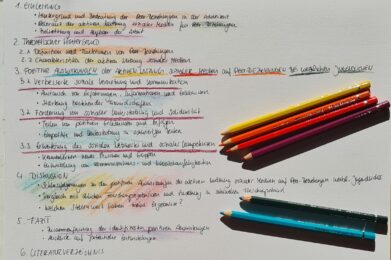 1. EINLEITUNG
• Hintergrund und Bedeutung der Peer-Beziehungen in der Adoleszenz
• Relevanz der aktiven Nutzung sozialer Medien für Peer-Beziehungen
• Zielsetzung und Aufbau der Arbeit
2. THEORETISCHER HINTERGRUND
2.1 Definition und Funktionen von Peer-Beziehungen
2.2 Charakteristika der aktiven Nutzung sozialer Medien
3. POSITIVE AUSWIRKUNGEN DER AKTIVEN NUTZUNG SOZIALER MEDIEN AUF PEER-BEZIEHUNGEN BEI WEIBLICHEN JUGENDLICHEN
3.1 Verbesserte soziale Beziehung und Kommunikation
• Austausch von Erfahrungen, Informationen und
• Stärkung bestehender Freundschaften
3.2 Förderung von sozialer Unterstützung und Solidarität
• Teilen von positiven Erlebnissen und Erfolgen
• Empathie und Unterstützung in schwierigen Zeiten
3.3 Erweiterung des sozialen Netzwerks und sozialer Kompetenzen
• Kennenlernen neuer Personen und Gruppen
• Entwicklung von Kommunikations- und
4. DISKUSSION
• der positiven Auswirkungen der aktiven Nutzung sozialer Medien auf Peer-Beziehungen weibl. Jugendlicher
• Vergleich mit
•
5. FAZIT
• Zusammenfassung der identifizierten positiven Auswirkungen
• Ausblick auf
6. LITERATURVERZEICHNIS